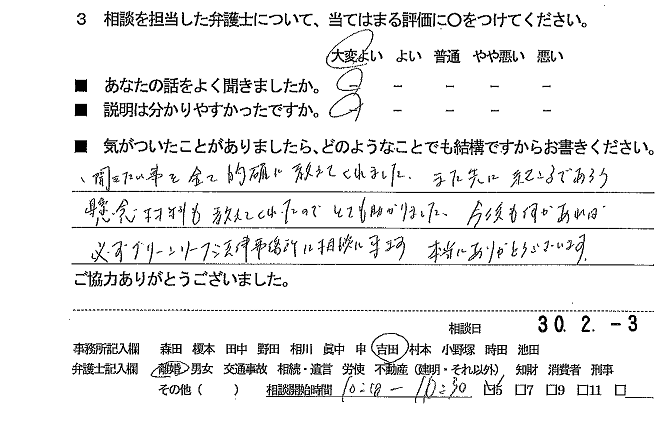 3 相談を担当した弁護士について、当てはまる評価に〇をつけてください。
大変よい よい 普通 やや悪い 悪い
■ あなたの話をよく聞きましたか。 － － － － －
■ 説明は分かりやすかったですか。 － － － － －
■ 気がついたことがありましたら、どのようなことでも結構ですからお書きください。
、聞きたい事を全て的確に教えてくれました、また先に起こるであろう
懸念材料も教えてくれたのでとても助かりました、今後も何かあれば
必ずグリーンリーフ法律事務所に相談に来ます 本当にありがとうございます
ご協力ありがとうございました。
相談日 30.2.-3
事務所記入欄 森田 榎本 田中 野田 相川 眞中 申 吉田 村本 小野塚 時田 池田
弁護士記入欄 離婚 男女 交通事故 相続・遺言 労使 不動産（建明・それ以外） 知財 消費者 刑事
その他（ ） 相談開始時間 10: － 10:30 □5 □7 □9 □11 □